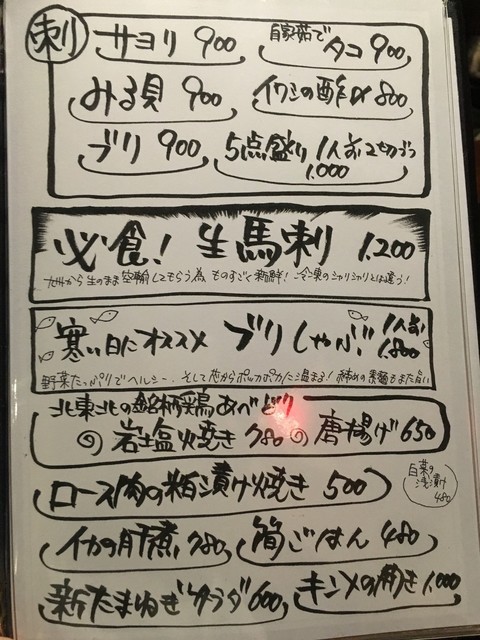 刺
サヨリ 900
自家茹で
タコ 900
みる貝 900
イワシの酢〆 800
ブリ 900
5点盛り 1人前2切づつ
1,000
必食! 生馬刺 1,200
九州から生のまま空輸してもらう為、ものすごく新鮮! 冷凍のシャリシャリとは違う!
寒い日にオススメ ブリしゃぶ 1人前
1,800
野菜たっぷりでヘルシー、そして芯からポッカポカに温まる! 締めの素麺もまた旨い
北東北の銘柄鶏あべどり
の 岩塩焼き 780 の 唐揚げ 650
ロース肉の粕漬け焼き 500
白菜の
浅漬け
480
イカの肝煮 780
筍ごはん 480
新たまねぎサラダ 600
キンメの 1,000